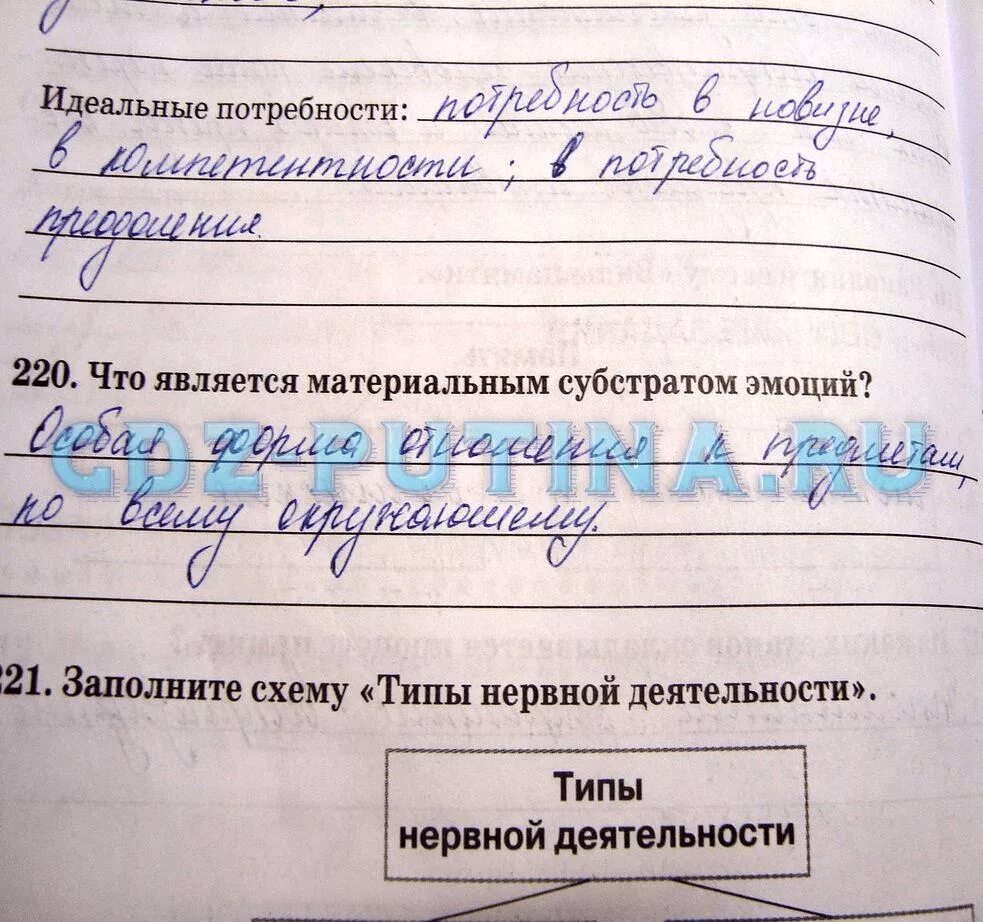 Идеальные потребности: потребность в новизне,
в компетентности; в потребность
преодоления.
220. Что является материальным субстратом эмоций?
Особая форма отношения к предметам,
ко всему окружающему.
GDZ-PUTINA.RU
221. Заполните схему «Типы нервной деятельности».
Типы
нервной деятельности